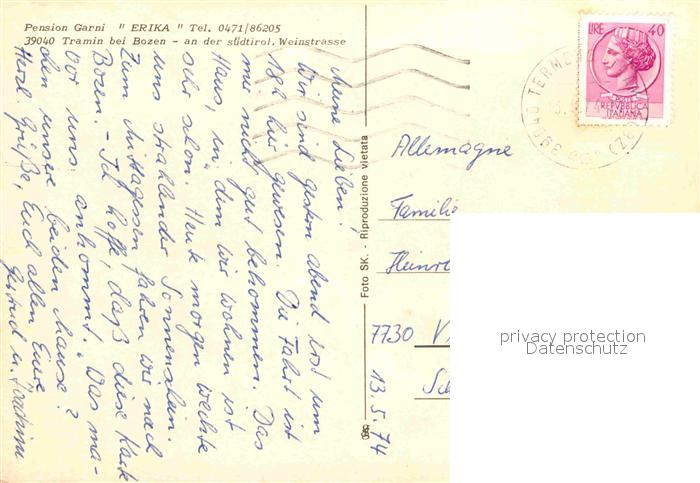 Pension Garni " ERIKA " Tel. 0471/86205
39040 Tramin bei Bozen - an der südtirol. Weinstrasse
Meine Lieben!
Wir sind gestern abend erst um
18h hier gewesen. Die Fahrt ist
mir nicht gut bekommen. Das
Haus, in dem wir wohnen ist
sehr schön. Heute morgen weckte
uns strahlender Sonnenschein.
Zum Mittagessen fahren wir nach
Bozen. - Ich hoffe, daß diese Karte
vor uns ankommt. Was ma-
chen unsere beiden Mause?
Herzl. Grüße, Euch allen Eure
Gertrud u. Joachim
Foto SK. - Riproduzione vietata
LIRE 40
REPVBBLICA
ITALIANA
39040 TERME
(BZ)
Allemagne
Famili
Heinr
7730 V
Sc
13.5.74
privacy protection
Datenschutz